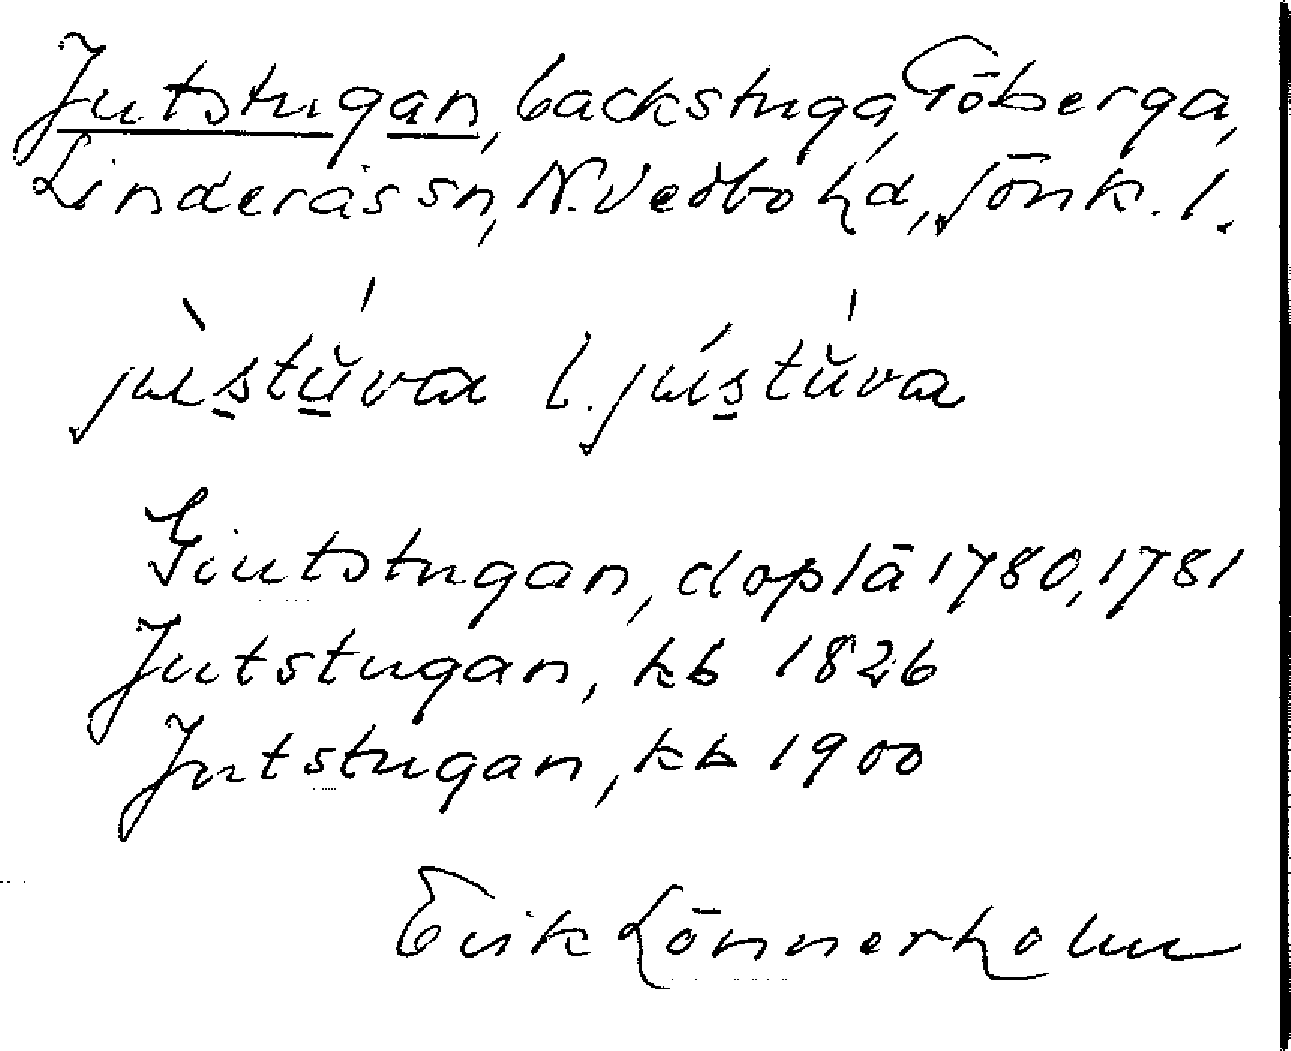 Jutstugan, backstuga, Töberga,
Linderås sn, N. Vedbo hd, Jönk. l.
jùstŭ́va l. jústŭ́va
Giutstugan, doplä 1780, 1781
Jutstugan, kb 1826
Jutstugan, kb 1900
Erik Lönnerholm